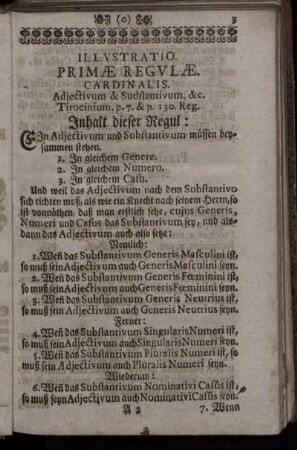 (o) 3
ILLVSTRATIO.
PRIMÆ REGVLÆ.
CARDINALIS.
Adjectivum & Substantivum, &c.
Tirocinium. p. 7. & p. 130. Reg.
Inhalt dieser Regul:
EIn Adjectivum und Substantivum müssen bey-
sammen stehen.
1. In gleichem Genere.
2. In gleichem Numero.
3. In gleichem Casu.
Und weil das Adjectivum nach dem Substantivo
sich richten muß, als wie ein Knecht nach seinem Herrn, so
ist vonnöthen, daß man erstlich sehe, cujus Generis,
Numeri und Casus das Substantivum sey, und als-
dann das Adjectivum auch also setze:
Nemlich:
1. Weñ das Substantivum Generis Masculini ist,
so muß sein Adjectivum auch Generis Masculini seyn.
2. Weñ das Substantivum Generis Fœminini ist,
so muß sein Adjectivum auch Generis Fœminini seyn.
3. Weñ das Substantivum Generis Neutrius ist,
so muß sein Adjectivum auch Generis Neutrius seyn.
Ferner:
4. Weñ das Substantivum Singularis Numeri ist,
so muß sein Adjectivum auch Singularis Numeri seyn.
5. Weñ das Substantivum Pluralis Numeri ist, so
muß sein Adjectivum auch Pluralis Numeri seyn.
Wiederum:
6. Weñ das Substantivum Nominativi Casûs ist,
so muß seyn Adjectivum auch Nominativi Casus seyn.
A 2 7. Wenn